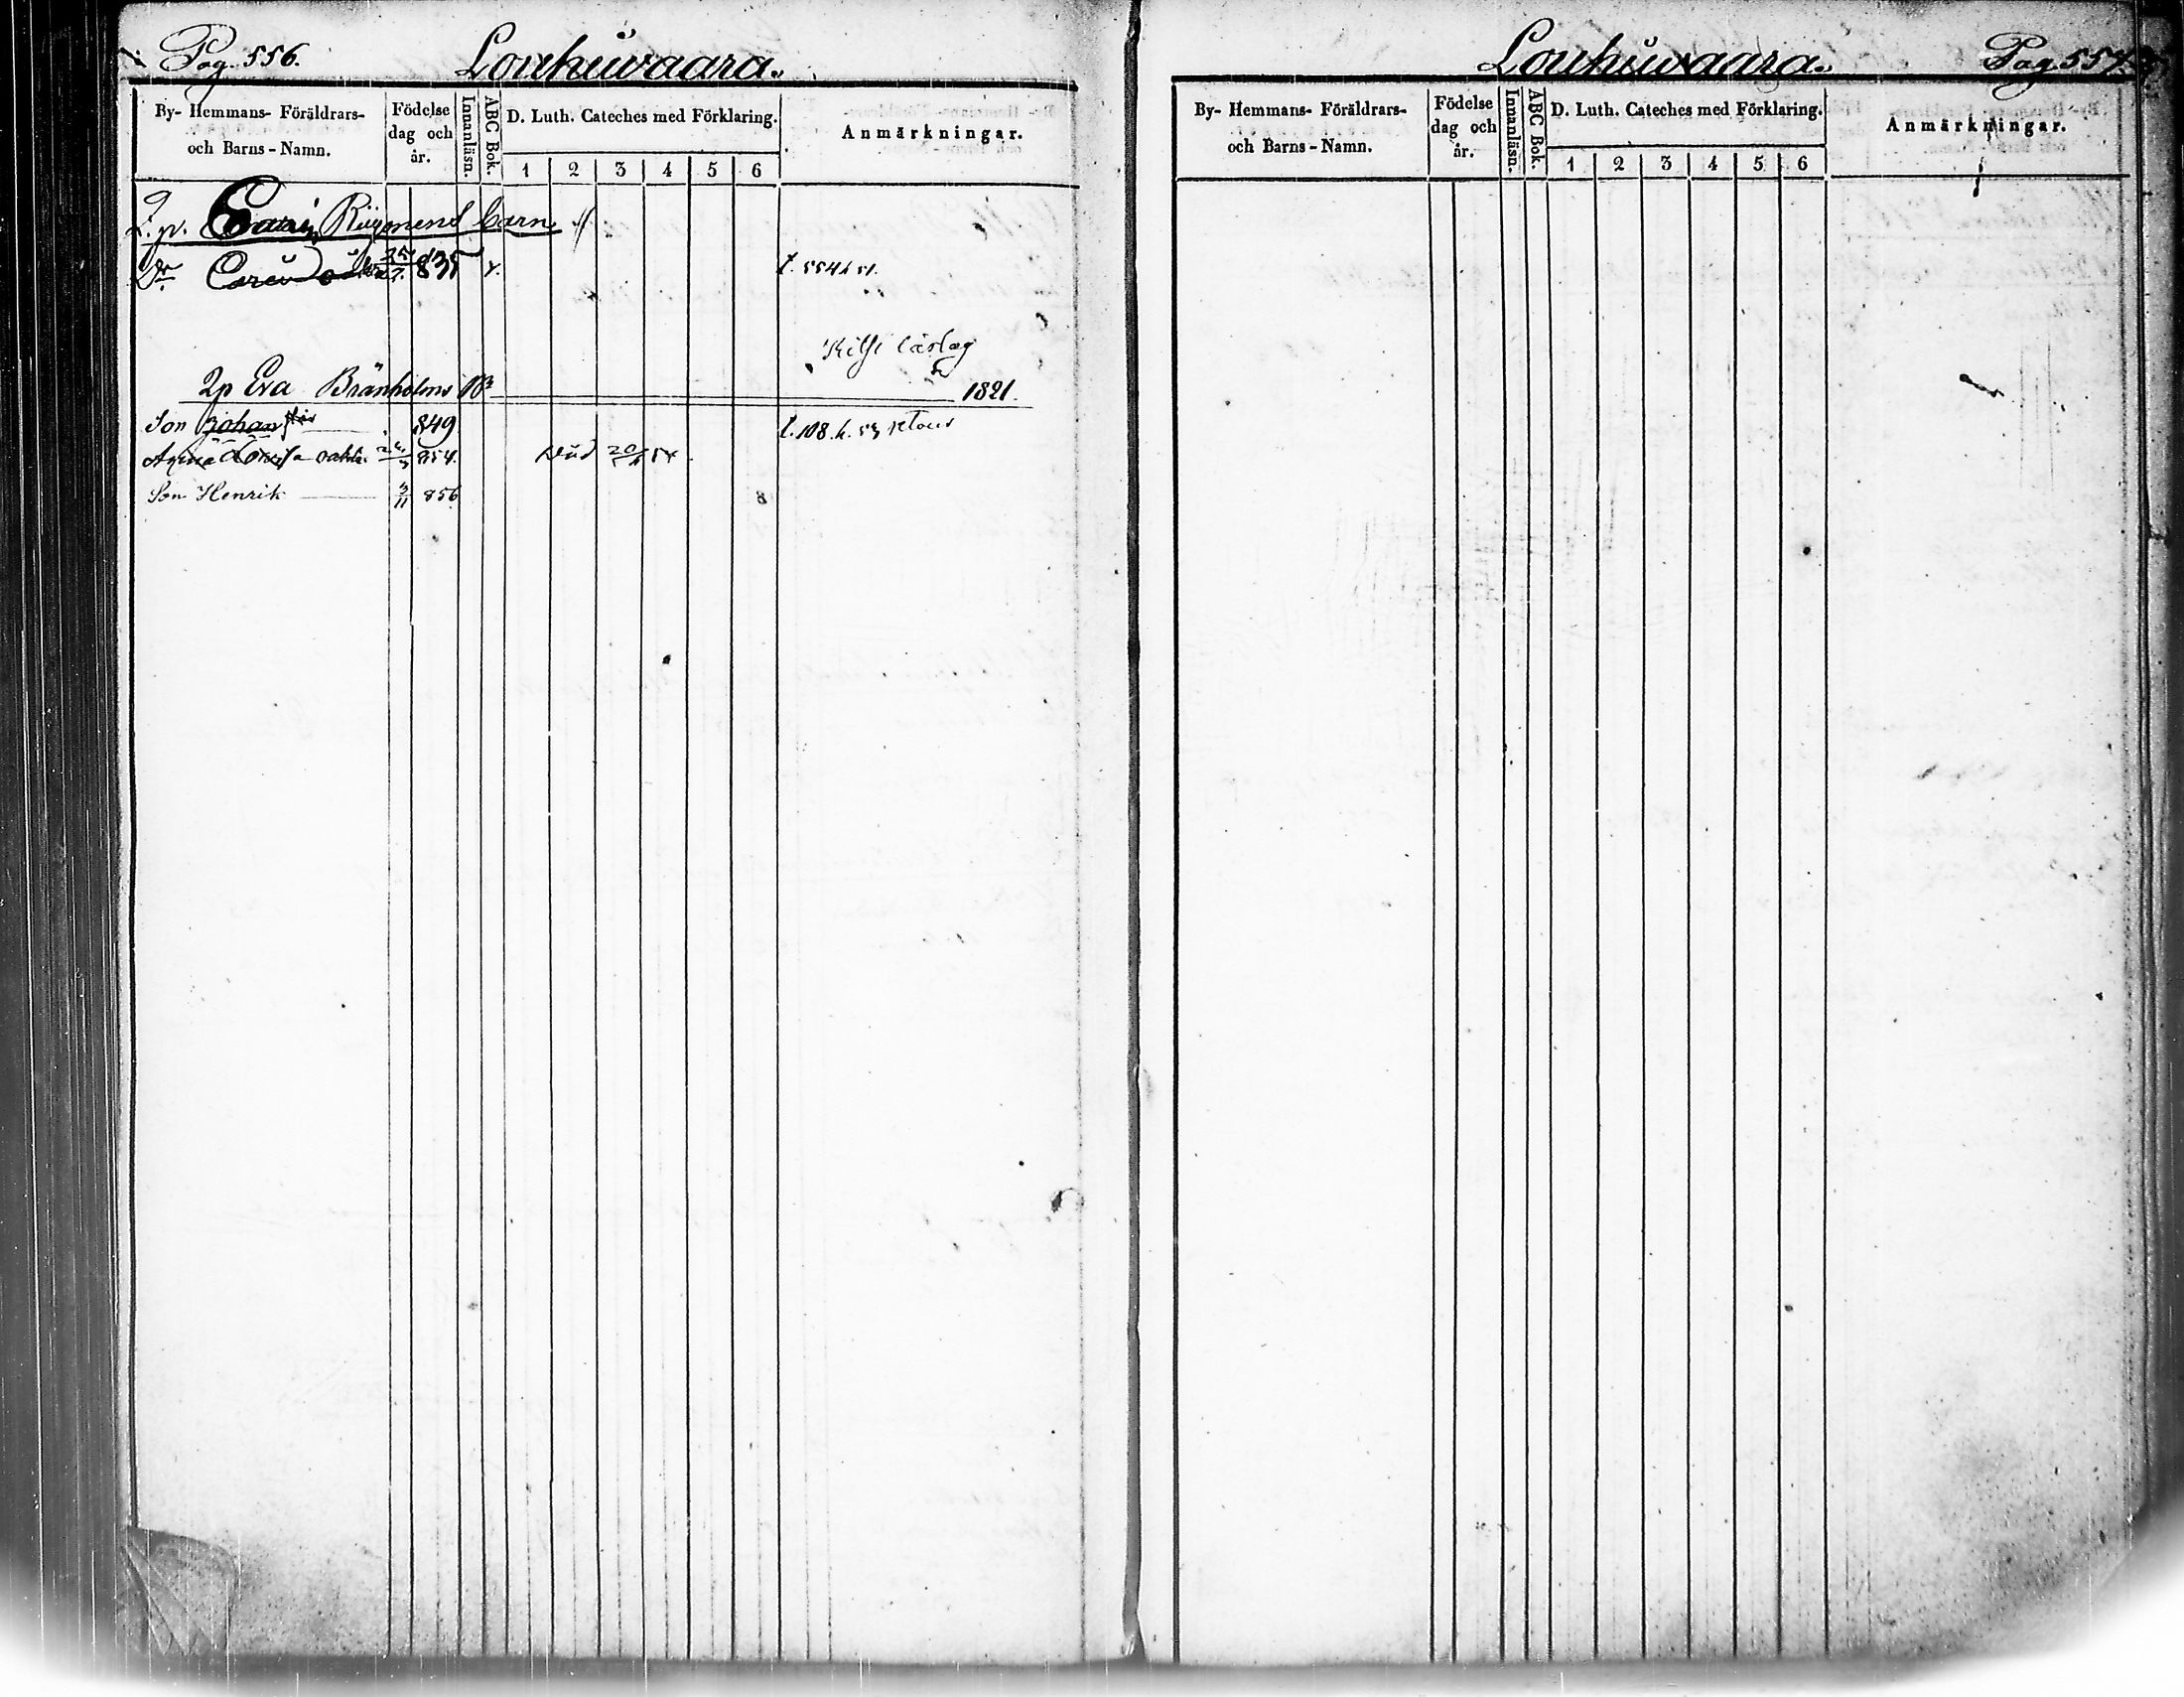 Pag. 556.
Louhuwaara.
By- Hemmans- Föräldrars-
och Barns - Namn.
Födelse
dag och
år.
Innanläsn.
ABC Bok.
D. Luth. Cateches med Förklaring.
1 2 3 4 5 6
Anmärkningar.
barn
835
2p Eva Bränholms 1821.
Son Johan 849
t. 108.
Lovisa 854. Död
Son Henrik 3/11 856
8
Louhuwaara.
Pag 557.
By- Hemmans- Föräldrars-
och Barns - Namn.
Födelse
dag och
år.
Innanläsn.
ABC Bok.
D. Luth. Cateches med Förklaring.
1 2 3 4 5 6
Anmärkningar.